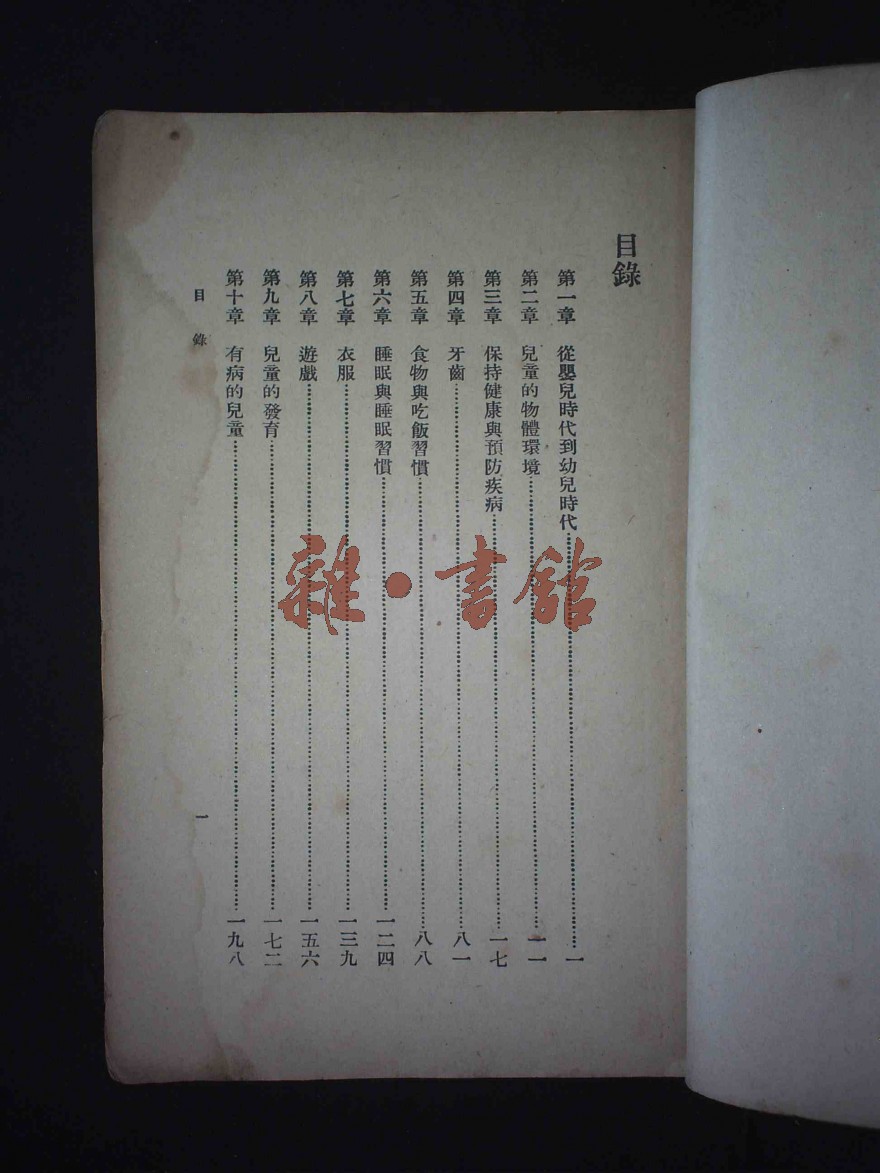 目錄
第一章 從嬰兒時代到幼兒時代……一
第二章 兒童的物體環境……一一
第三章 保持健康與預防疾病……一七
第四章 牙齒……八一
第五章 食物與吃飯習慣……八八
第六章 睡眠與睡眠習慣……一二四
第七章 衣服……一三九
第八章 遊戲……一五六
第九章 兒童的發育……一七二
第十章 有病的兒童……一九八
目 錄 一
雜·書館